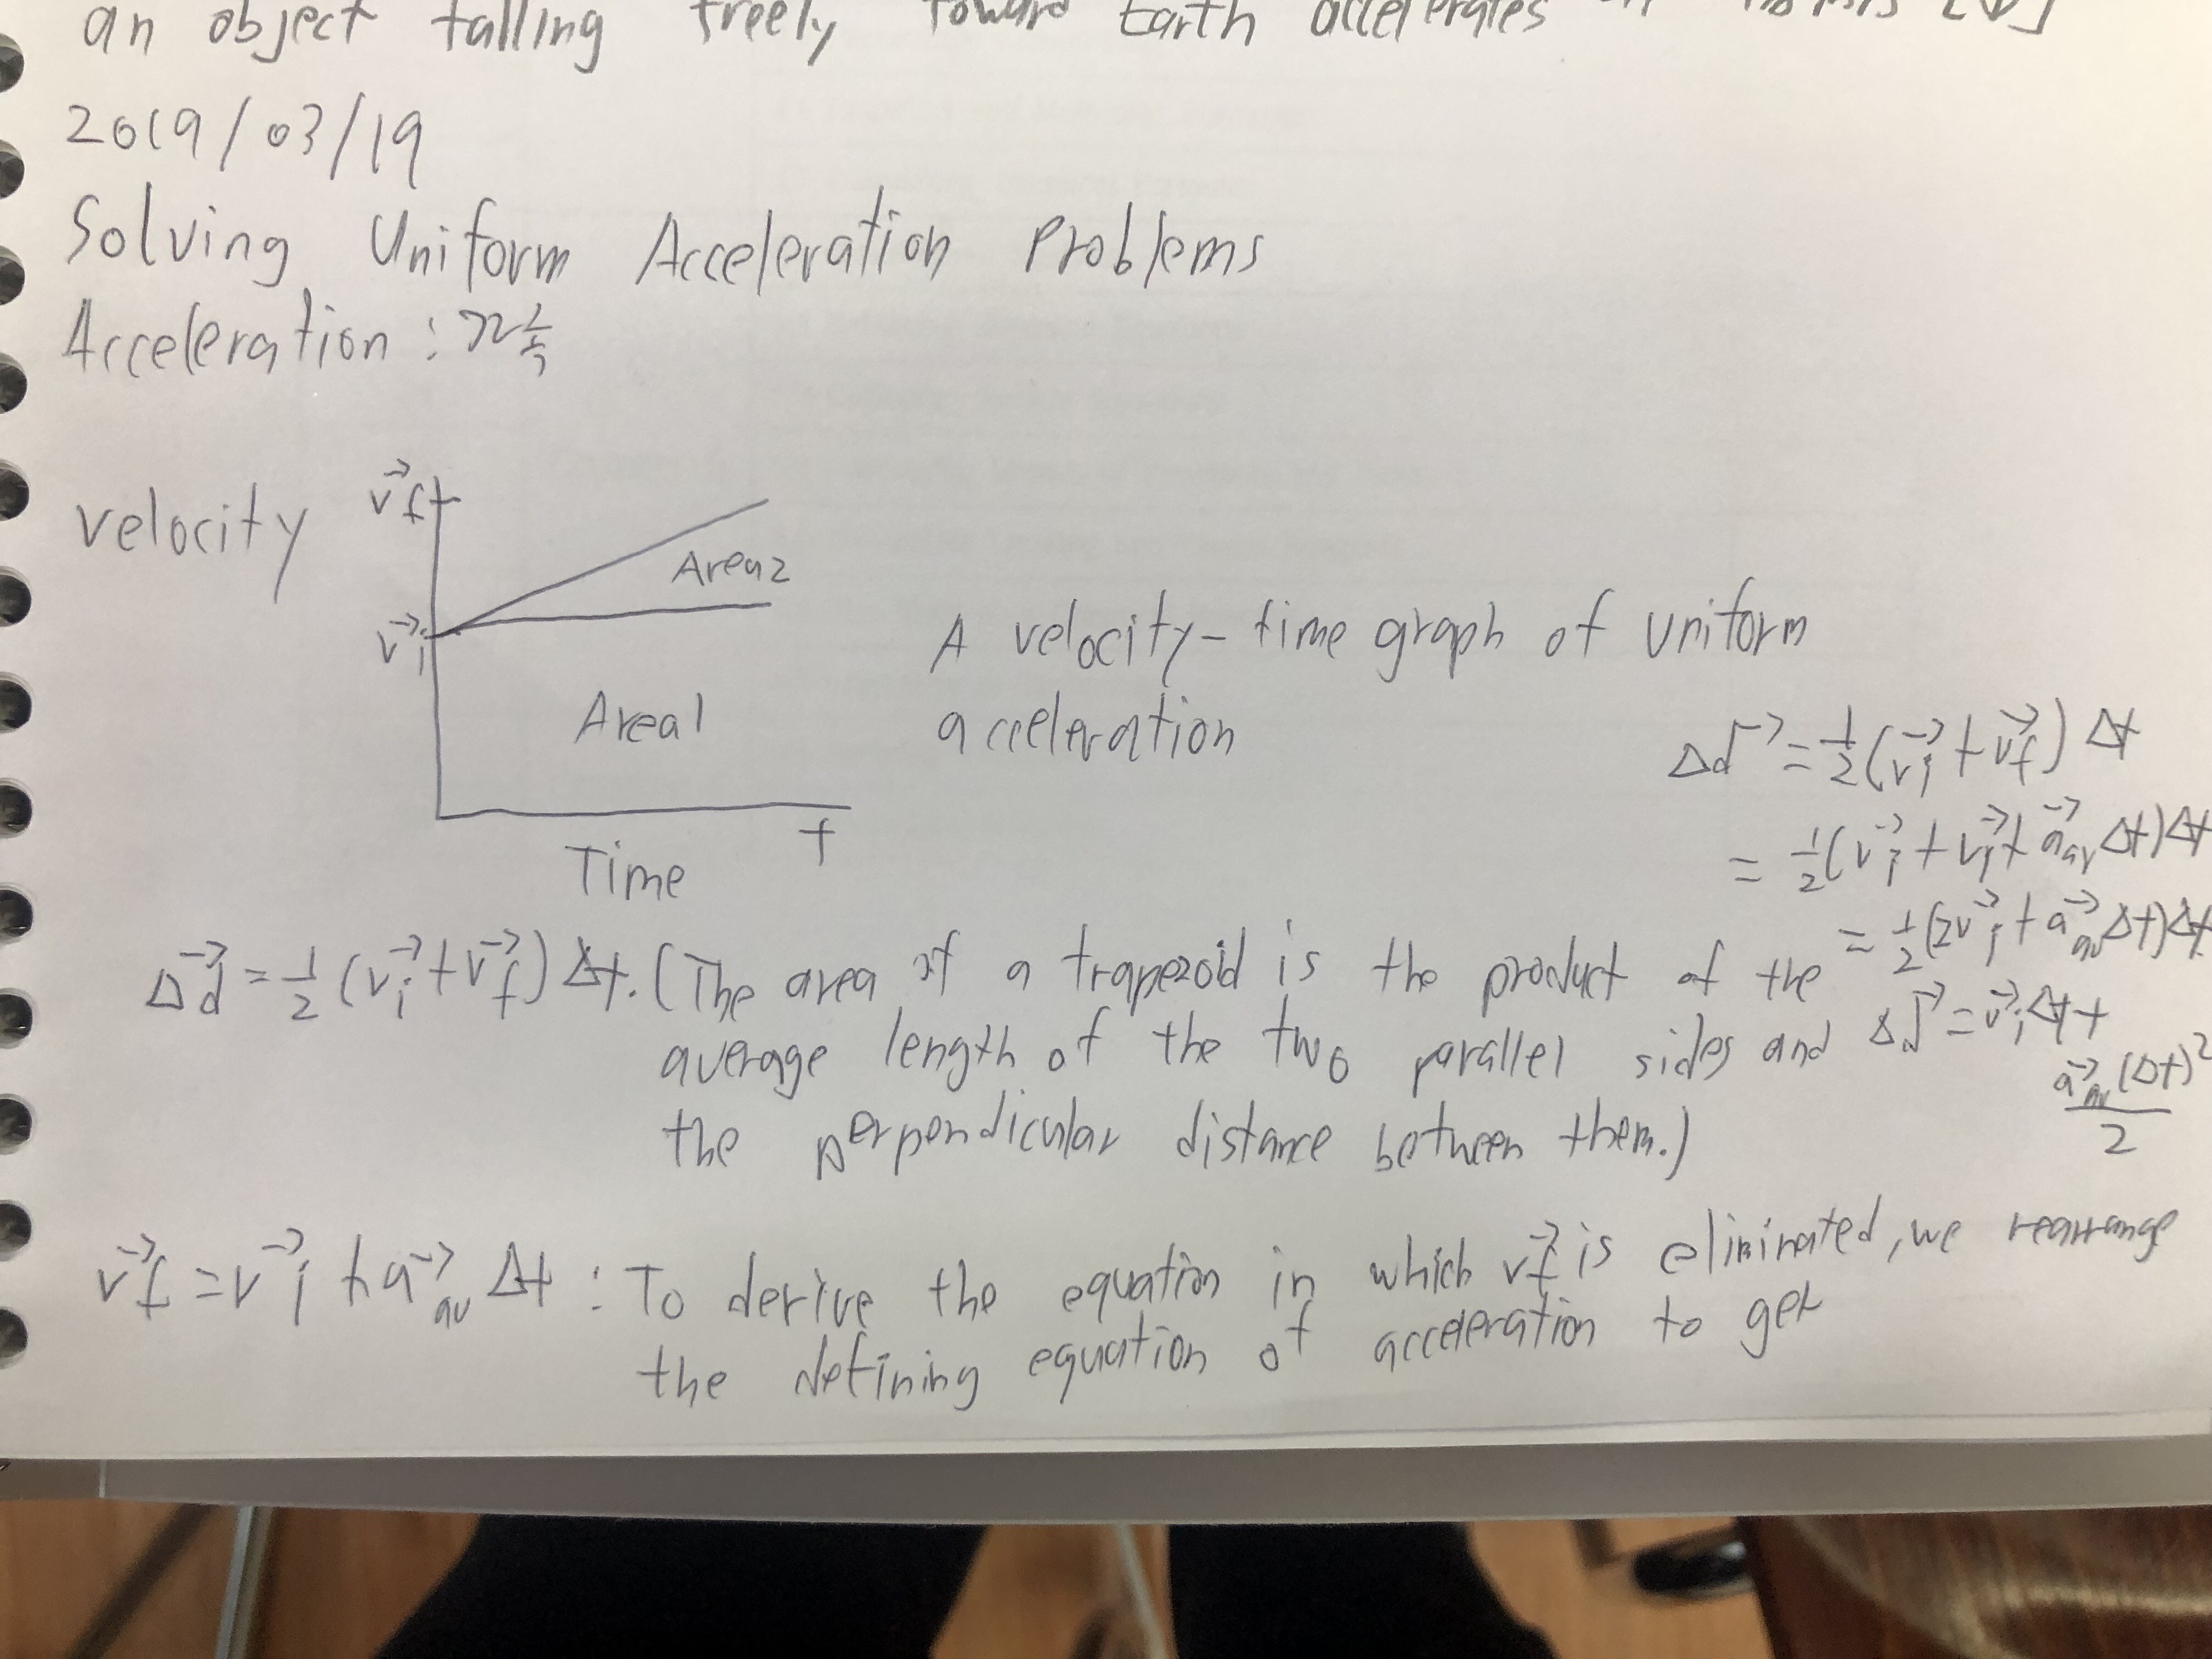 an object falling freely toward Earth accelerates
2019/03/19
Solving Uniform Acceleration Problems
Acceleration: 가속
velocity
v⃗f
v⃗i
Area2
Area1
t
Time
A velocity-time graph of uniform
acceleration
Δd⃗ = ½(v⃗i + v⃗f) Δt
= ½(v⃗i + v⃗i + a⃗av Δt)Δt
= ½(2v⃗i + a⃗av Δt)Δt
Δd⃗ = v⃗iΔt +
a⃗av(Δt)²
2
Δd⃗ = ½ (v⃗i + v⃗f) Δt. (The area of a trapezoid is the product of the
average length of the two parallel sides and
the perpendicular distance between them.)
v⃗f = v⃗i + a⃗av Δt : To derive the equation in which v⃗f is eliminated, we rearrange
the defining equation of acceleration to get